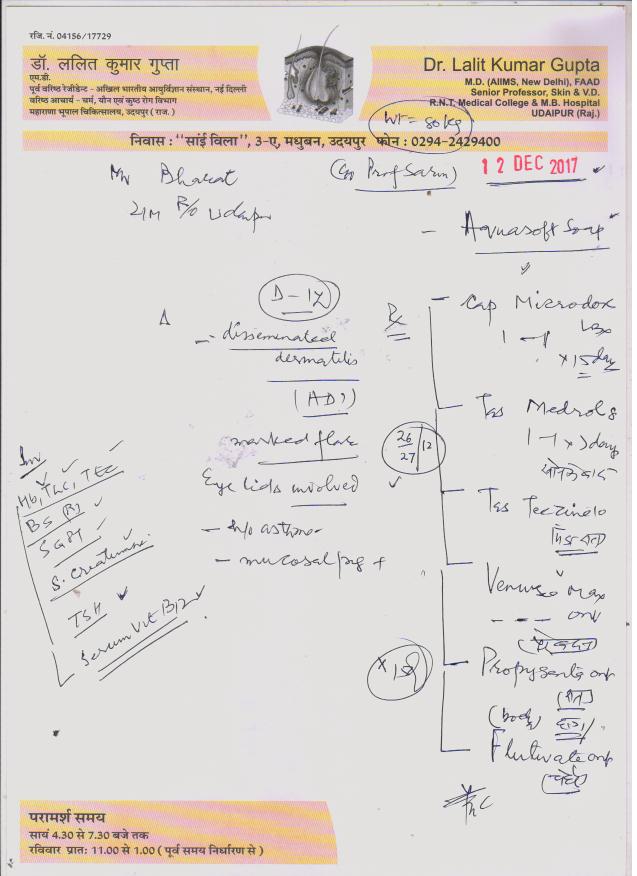 रजि. नं. 04156/17729
डॉ. ललित कुमार गुप्ता
एम.डी.
पूर्व वरिष्ठ रेजीडेन्ट - अखिल भारतीय आयुर्विज्ञान संस्थान, नई दिल्ली
वरिष्ठ आचार्य - चर्म, यौन एवं कुष्ठ रोग विभाग
महाराणा भूपाल चिकित्सालय, उदयपुर ( राज. )
Dr. Lalit Kumar Gupta
M.D. (AIIMS, New Delhi), FAAD
Senior Professor, Skin & V.D.
R.N.T. Medical College & M.B. Hospital
UDAIPUR (Raj.)
WT = 80 kg
निवास : "सांई विला", 3-ए, मधुबन, उदयपुर फोन : 0294-2429400
12 DEC 2017
Mr Bharat
(C/o Prof Sarin)
21M R/o Udaipur
- Aquasoft Soap
D-12
Δ
Rx
- Cap Microdox LBx
1 - 1
x 15 days
- disseminated
dermatitis
(AD?)
- Tab Medrol 8
marked flare
26/27/12
Eye lids involved
- Tab Teczine 10
- h/o asthma
- mucosal pig +
Inv
Hb, TLC, TEC
BS (R)
SGPT
S. Creatinine
TSH
Serum Vit B12
Venusia Max
- Propysalic
(body)
- Flutivate
परामर्श समय
सायं 4.30 से 7.30 बजे तक
रविवार प्रातः 11.00 से 1.00 ( पूर्व समय निर्धारण से )